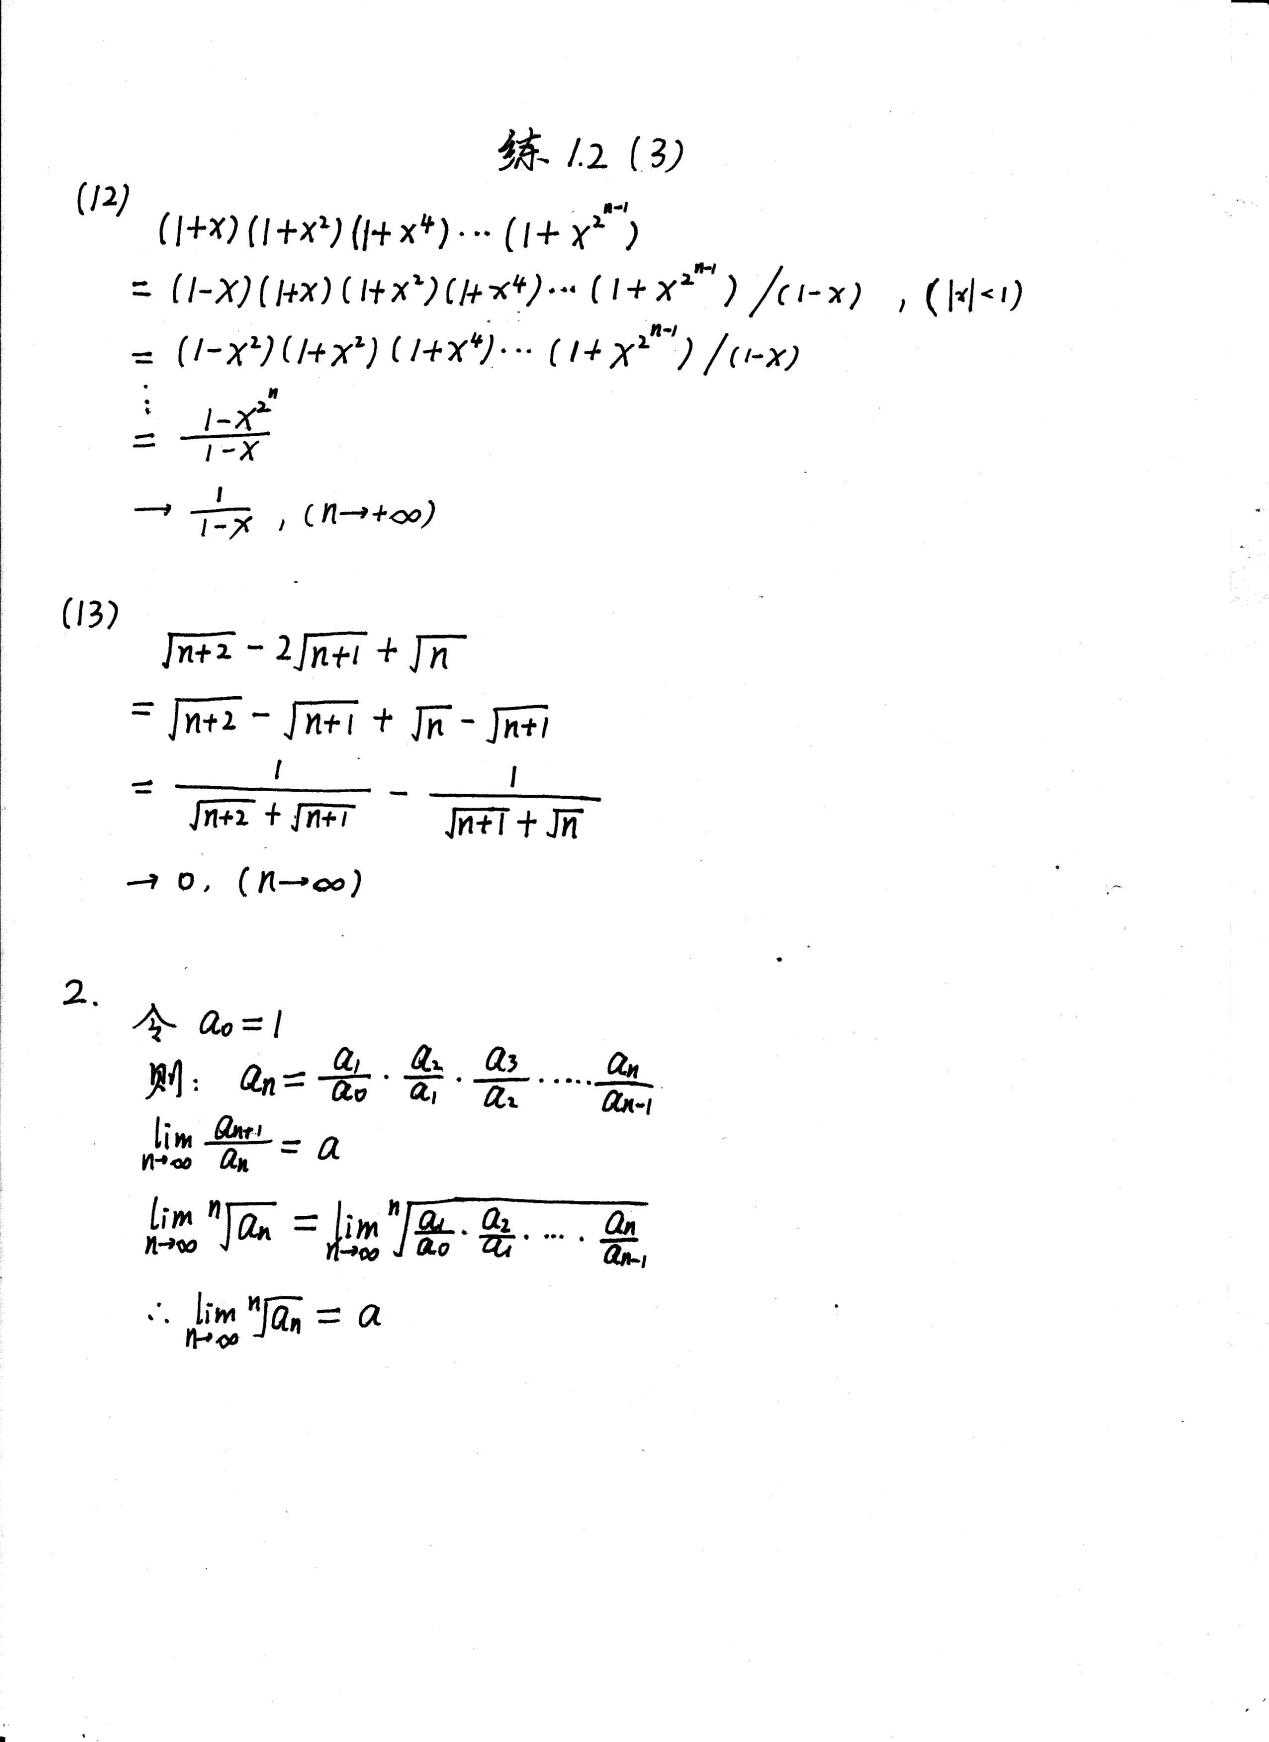 练 1.2 (3)
(12)
(1+x)(1+x²)(1+x⁴)···(1+x^{2^{n-1}})
= (1-x)(1+x)(1+x²)(1+x⁴)···(1+x^{2^{n-1}})/(1-x) , (|x|<1)
= (1-x²)(1+x²)(1+x⁴)···(1+x^{2^{n-1}})/(1-x)
⋮
= \frac{1-x^{2^n}}{1-x}
→ \frac{1}{1-x} , (n→+∞)
(13)
√(n+2) - 2√(n+1) + √n
= √(n+2) - √(n+1) + √n - √(n+1)
= \frac{1}{√(n+2) + √(n+1)} - \frac{1}{√(n+1) + √n}
→ 0, (n→∞)
2.
令 a₀=1
则: aₙ = \frac{a₁}{a₀} · \frac{a₂}{a₁} · \frac{a₃}{a₂} ····· \frac{aₙ}{a_{n-1}}
\lim_{n→∞} \frac{a_{n+1}}{aₙ} = a
\lim_{n→∞} \sqrt[n]{aₙ} = \lim_{n→∞} \sqrt[n]{\frac{a₁}{a₀} · \frac{a₂}{a₁} · ··· · \frac{aₙ}{a_{n-1}}}
∴ \lim_{n→∞} \sqrt[n]{aₙ} = a